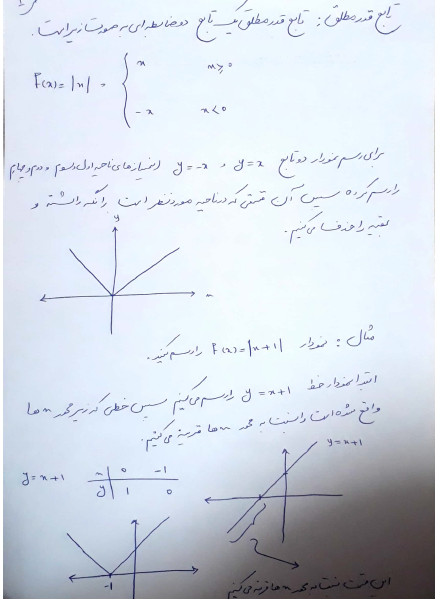 تابع قدر مطلق: تابع قدر مطلق یک تابع دو ضابطه‌ای به صورت زیر است.
F(x) = |x| = { x x≥0
-x x<0
برای رسم نمودار دو تابع y = x و y = -x (نیمساز های ناحیه اول و سوم و دوم و چهارم)
را رسم کرده سپس آن قسمتی که در ناحیه مورد نظر است را نگه داشته و
بقیه را حذف می کنیم.
y
x
مثال: نمودار F(x) = |x+1| را رسم کنید.
ابتدا نمودار خط y = x+1 را رسم می کنیم سپس خطی که زیر محور x ها
واقع شده است را نسبت به محور x ها قرینه می کنیم.
y = x+1
x | 0 -1
y | 1 0
y = x+1
-1
این قسمت نسبت به محور x ها قرینه می کنیم